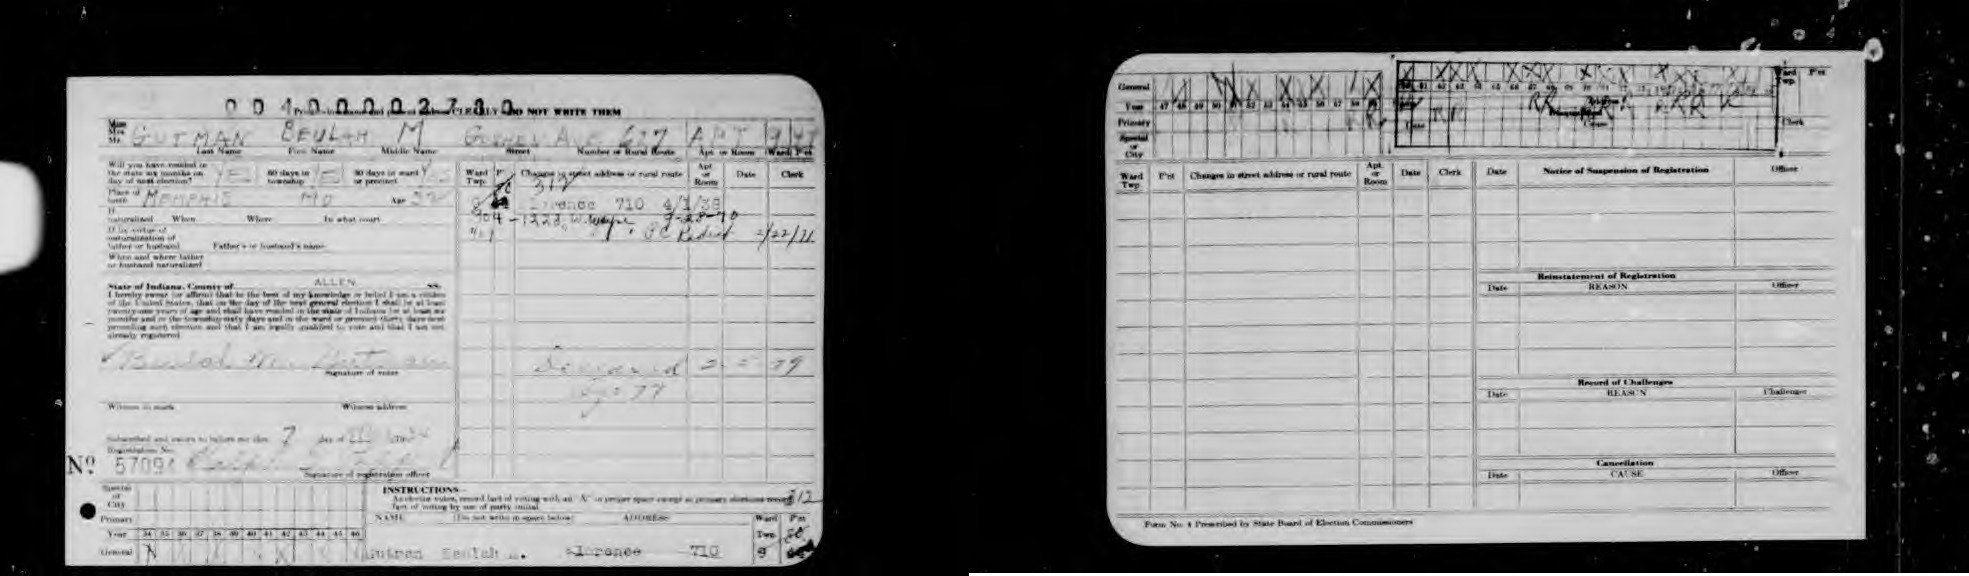 004000002780
CLEARLY DO NOT WRITE THEM
Miss Mrs. Mr. GUTMAN BEULAH M GOSHEN AVE 627 APT 9
Last Name First Name Middle Name Street Number or Rural Route Apt. or Room Ward Pct
Will you have resided in the state six months on day of next election? YES 60 days in township YES 30 days in ward or precinct YES
Place of birth MEMPHIS MO Age 32
If naturalized When Where In what court
If by virtue of naturalization of father or husband Father's or husband's name
When and where father or husband naturalized
State of Indiana, County of ALLEN ss.
I hereby swear (or affirm) that to the best of my knowledge or belief I am a citizen
of the United States, that on the day of the next general election I shall be at least
twenty-one years of age and shall have resided in the state of Indiana for at least six
months and in the township sixty days and in the ward or precinct thirty days next
preceding such election and that I am legally qualified to vote and that I am not
already registered.
Beulah M. Gutman
Signature of voter
Witness to mark Witness address
Subscribed and sworn to before me this 7 day of
Registration No.
Nº 57094
Signature of registration officer
Ward Twp. Changes in street address or rural route Apt. or Room Date Clerk
312
lorence 710 4/1/38
904 - 1323 W. Wayne 9-28-70
401 P C Redist 2/22/71
Deceased 2-5-79
Age 77
Special or City
Primary
Year 34 35 36 37 38 39 40 41 42 43 44 45 46
General
INSTRUCTIONS
As elector votes, record fact of voting with an "X" in proper space except in primary elections record
fact of voting by use of party initial.
312
NAME (Do not write in space below) ADDRESS Ward Twp. Pct
Gutman Beulah M. lorence 710 9
General
Year 47 48 49 50 51 52 53 54 55 56 57 58 59
Primary
Special or City
Ward Twp. Pct
Clerk
Ward Twp. Pct Changes in street address or rural route Apt. or Room Date Clerk
Date Notice of Suspension of Registration Officer
Reinstatement of Registration
Date REASON Officer
Record of Challenges
Date REASON Challenger
Cancellation
Date CAUSE Officer
Form No. 4 Prescribed by State Board of Election Commissioners